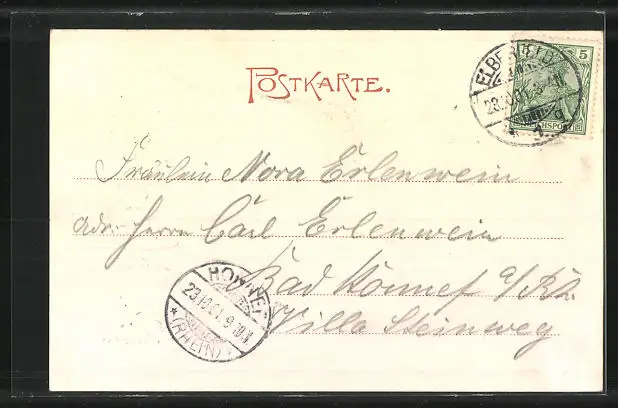 POSTKARTE.
ELBERFELD
5
REICHSPOST
Fräulein Nora Erlenwein
adr. Herrn Carl Erlenwein
Bad Honnef a/Rh.
Villa Steinweg
HONNEF
(RHEIN)